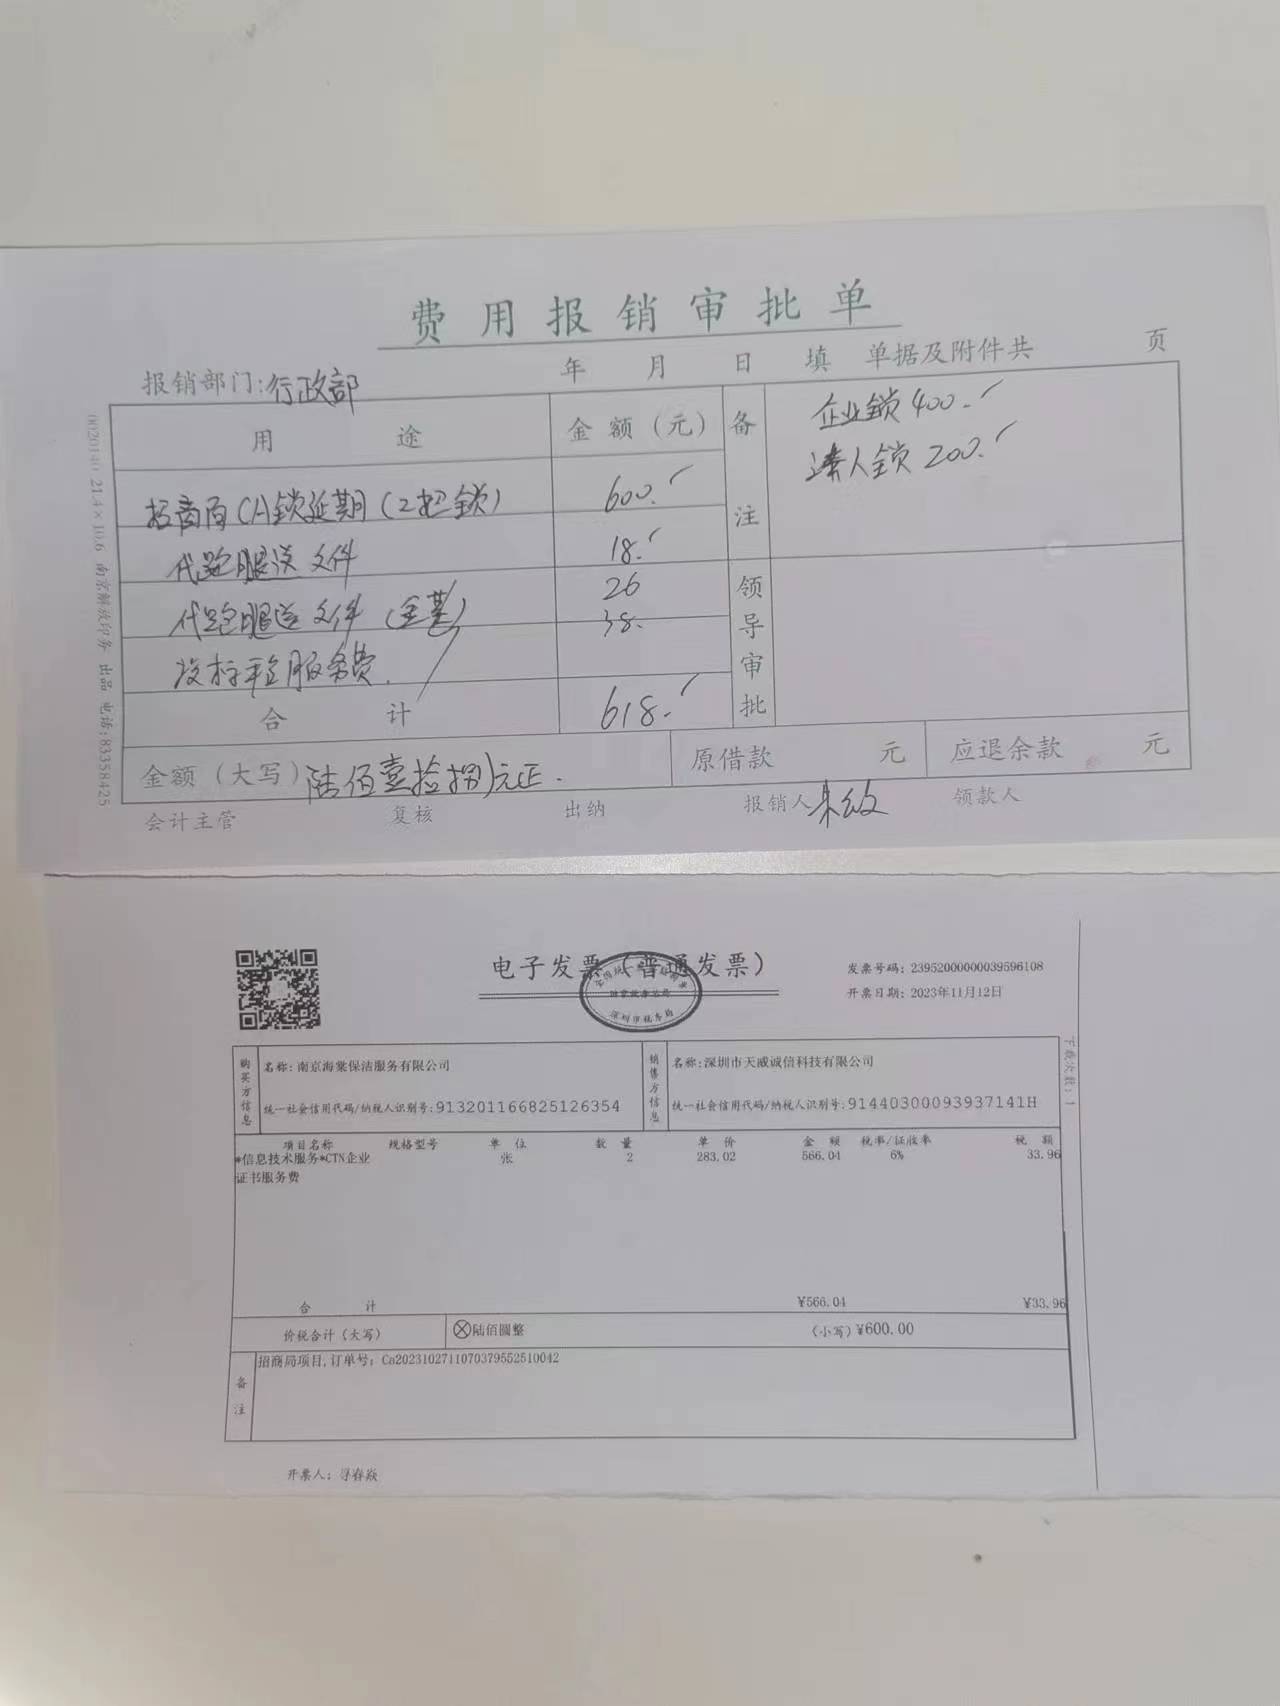 费用报销审批单
报销部门:行政部 年 月 日 填 单据及附件共 页
用途 金额(元) 备注 企业锁 400.✓
法人锁 200.✓
招商局CA锁延期(2把锁) 600.✓
代跑腿送文件 18.✓
代跑腿送文件 26
投标平台服务费. 38.
合计 618.✓
领导审批
金额(大写)陆佰壹拾捌元正. 原借款 元 应退余款 元
会计主管 复核 出纳 报销人 领款人
0020140 21.4×10.6 南京解放印务 出品 电话:83358425
电子发票(普通发票)
深圳市税务局
发票号码: 23952000000039596108
开票日期: 2023年11月12日
购买方信息
名称: 南京海棠保洁服务有限公司
统一社会信用代码/纳税人识别号: 913201166825126354
销售方信息
名称: 深圳市天威诚信科技有限公司
统一社会信用代码/纳税人识别号: 91440300093937141H
下载次数:1
项目名称 规格型号 单位 数量 单价 金额 税率/征收率 税额
*信息技术服务*CTN企业 张 2 283.02 566.04 6% 33.96
证书服务费
合计 ¥566.04 ¥33.96
价税合计(大写) ⊗陆佰圆整 (小写)¥600.00
备注
招商局项目,订单号: Ca2023102711070379552510042
开票人: